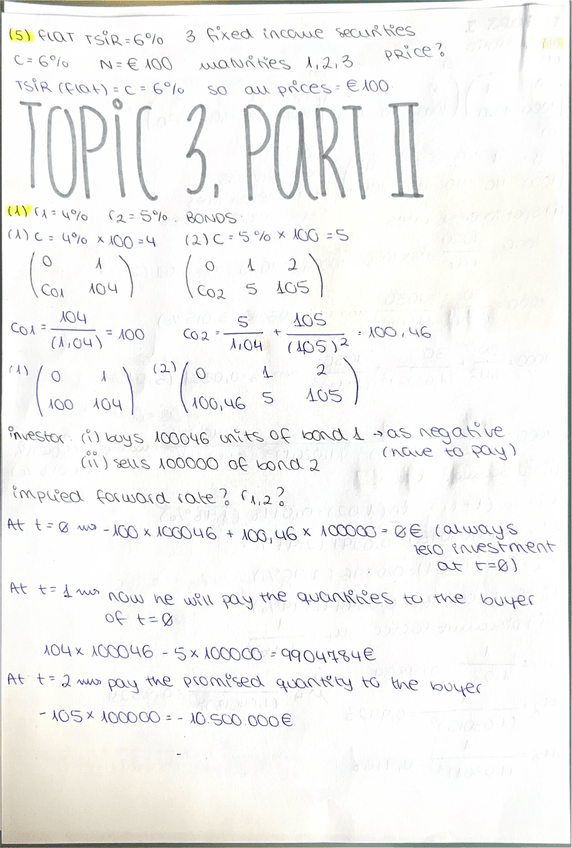 (5) FLAT TSIR=6% 3 fixed income securities
C=6% N=€100 maturities 1,2,3 PRICE?
TSIR (flat)=C=6% so all prices=€100
TOPIC 3. PART II
(1) r1=4% r2=5%. BONDS
(1) C=4%×100=4 (2) C=5%×100=5
0 1 0 1 2
C01 104 C02 5 105
C01= 104/(1,04) =100 C02= 5/1,04 + 105/(105)² =100,46
(1) 0 1 (2) 0 1 2
100 104 100,46 5 105
investor: (i) buys 100046 units of bond 1 → as negative
(have to pay)
(ii) sells 100000 of bond 2
implied forward rate? r1,2?
At t=0 -100×100046 + 100,46×100000=0€ (always
zero investment
at t=0)
At t=1 now he will pay the quantities to the buyer
of t=0
104×100046 - 5×100000=9904784€
At t=2 pay the promised quantity to the buyer
-105×100000=-10.500.000€